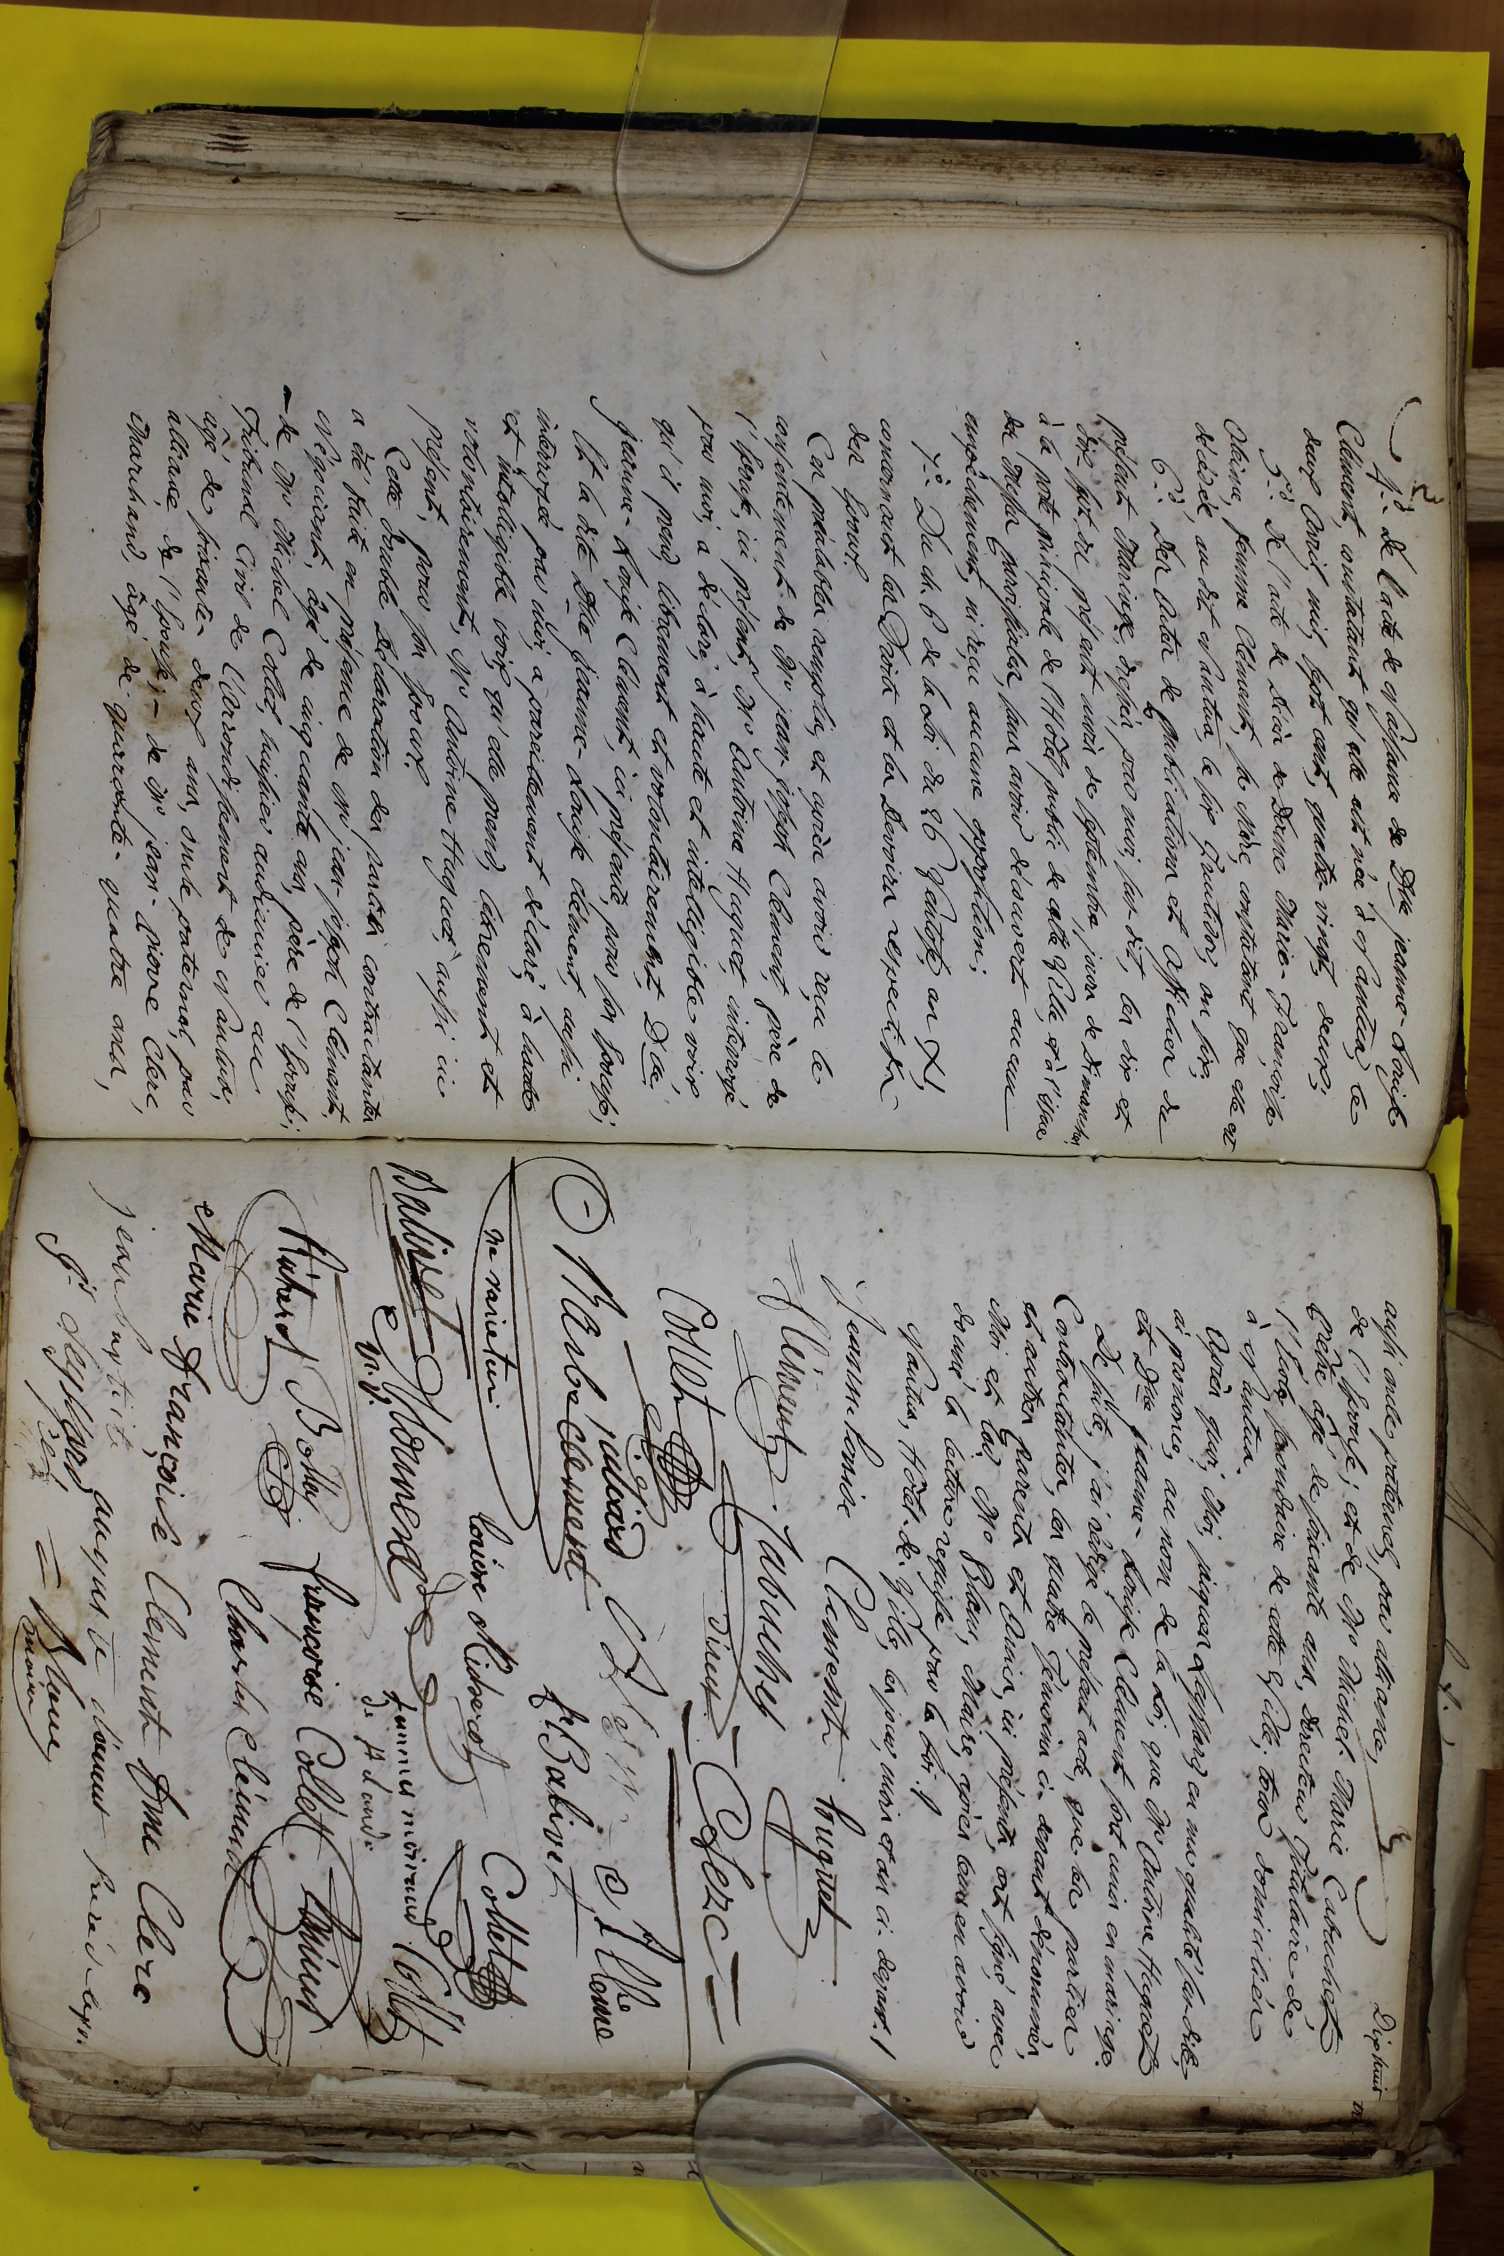 4.° De l'acte de Naissance de Dlle jeanne-Louise
Clément, constatant qu'elle est née à Nantua, le
deux Avril mil sept cent quatre vingt deux;
5.° De l'acte de Décès de Dame Marie-Françoise
femme Clément, sa Mère, constatant qu'elle est
décédée, au dit Nantua, le six an six;
6.° Des Actes de publications et Affiches du
présent Mariage, dressés, par moi sus-dit, les dix et
dix sept du présent mois de septembre, jours de Dimanches
à la porte principale de l'Hôtel public de cette Ville, et à l'issue
des Messes paroissiales, sans avoir découvert aucun
empêchement, ni reçu aucune opposition;
7.° Du ch. 6 de la Loi du 26 Ventose, an XI,
concernant les Droits et les Devoirs respectifs
des Epoux.
Ces préalables remplis, et après avoir reçu le
consentement de Mr jean joseph Clément, père de
l'épouse, ici présent, Mr Antoine Huguet, interrogé
par moi, a déclaré, à haute et intelligible voix,
qu'il prend librement et volontairement, Dlle
jeanne-Louise Clément, ici présente, pour son Epouse;
Et la dite Dlle jeanne-Louise Clément, aussi
interrogée par moi, a pareillement déclaré, à haute
et intelligible voix, qu'elle prend, librement et
volontairement, Mr Antoine Huguet, aussi ici
présent, pour son Epoux.
Cette double Déclaration des parties contractantes
a été faite en présence de Mr jean-joseph Clément,
Négociant, âgé de cinquante ans, père de l'épouse;
- de Mr Michel Collet, huissier audiencier au
Tribunal Civil de l'Arrondissement de Nantua,
âgé de soixante-deux ans, oncle paternel, par
alliance, de l'épouse; - de Mr jean-pierre Clerc,
Marchand, âgé de quarante-quatre ans,
Dix huit
aussi oncle paternel, par alliance,
de l'épouse; et de Mr Michel-Marie Cabuchet
âgé de soixante ans, Directeur Titulaire de
de cette Ville; tous domiciliés
à Nantua.
Après quoi, Moi, Seyssard en ma qualité sus-dite,
ai prononcé, au nom de la Loi, que Mr Antoine Huguet
et Dlle jeanne-Louise Clément sont unis en mariage.
De suite, j'ai rédigé le présent acte, que les parties
Contractantes, les quatre Témoins ci-devant dénommés,
et autres parents et Amis, ici présents, ont signé avec
Moi et Mr Blanc, Maire, après leur en avoir
donné la lecture requise par la Loi.
Nantua, Hôtel-de-Ville, les jour, mois et an ci-dessus.
jeanne Louise Clement huguet
Clément Cabuchet
Collet Clerc
Clement
ne varietur f Balivet
louise Collet
Balivet
françoise Collet
Charles Clément
Marie françoise Clement fme Clerc
jean baptiste auguste clément
Seyssard
Blanc
maire